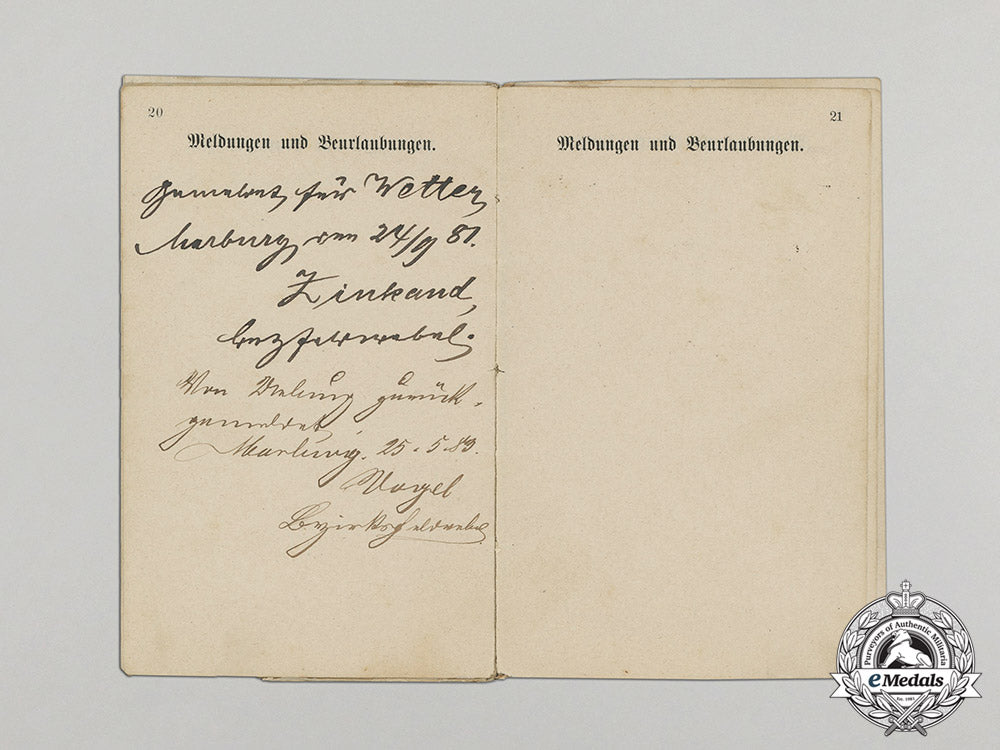 20
Meldungen und Beurlaubungen.
Gemeldet für Wetter,
Marburg, den 24/9 81.
Zinkand,
Bezfeldwebel.
Von zurück-
gemeldet
Marburg. 25.5.83.
Vogel
Bezirksfeldwebel
21
Meldungen und Beurlaubungen.
Purveyors of Authentic Militaria
eMedals